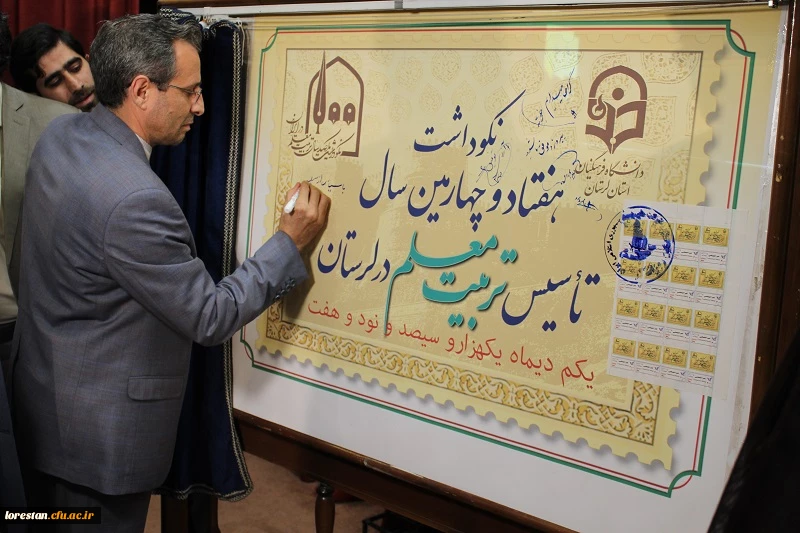 نکوداشت
هفتاد و چهارمین سال
تأسیس تربیت معلم در لرستان
یکم دیماه یکهزارو سیصد و نود و هفت
دانشگاه فرهنگیان
استان لرستان
lorestan.cfu.ac.ir